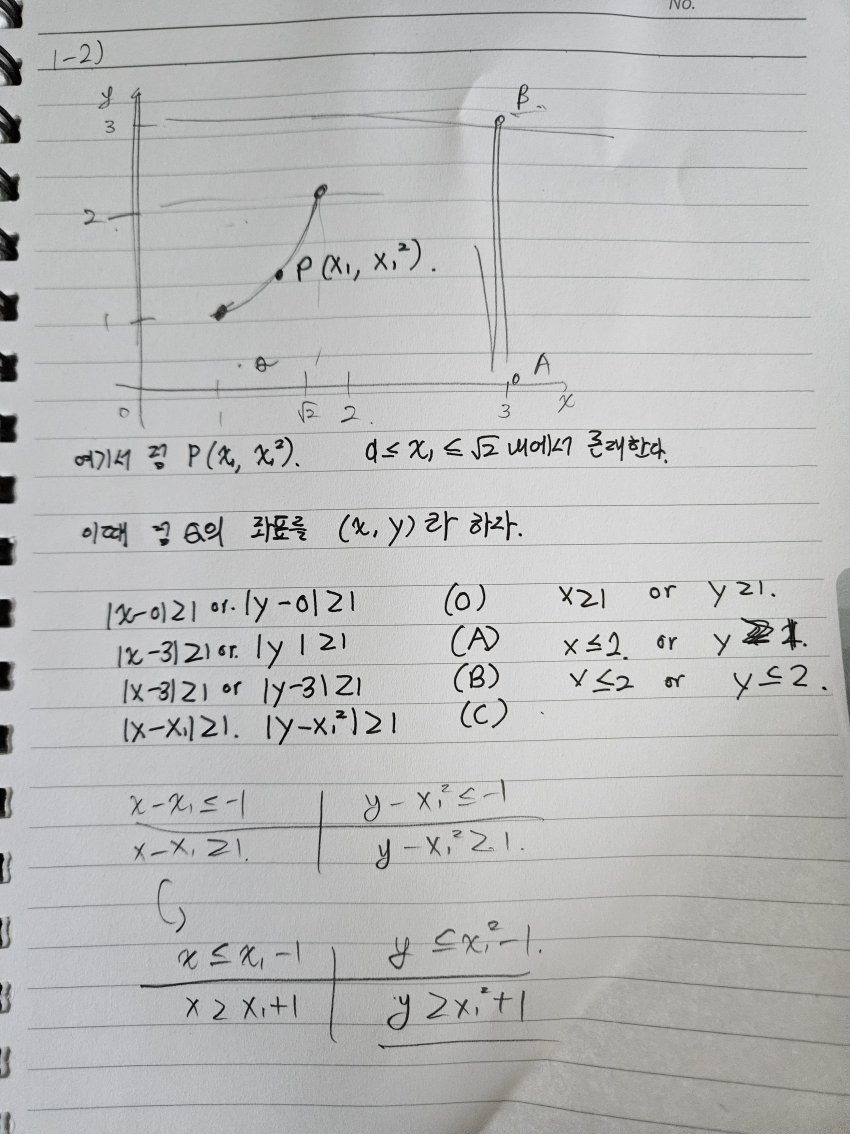 No.
1-2)
y
B
3
2
P(x₁, x₁²).
1
Q
A
0
1
√2
2
3
x
여기서 점 P(x₁, x₁²). a ≤ x₁ ≤ √2 내에서 존재한다.
이때 점 Q의 좌표를 (x, y)라 하자.
|x-0|≥1 or. |y-0|≥1 (O) x≥1 or y≥1.
|x-3|≥1 or. |y|≥1 (A) x≤2 or y≥1.
|x-3|≥1 or |y-3|≥1 (B) x≤2 or y≤2.
|x-x₁|≥1. |y-x₁²|≥1 (C)
x-x₁≤-1 y-x₁²≤-1
x-x₁≥1. y-x₁²≥1.
x≤x₁-1 y≤x₁²-1.
x≥x₁+1 y≥x₁²+1